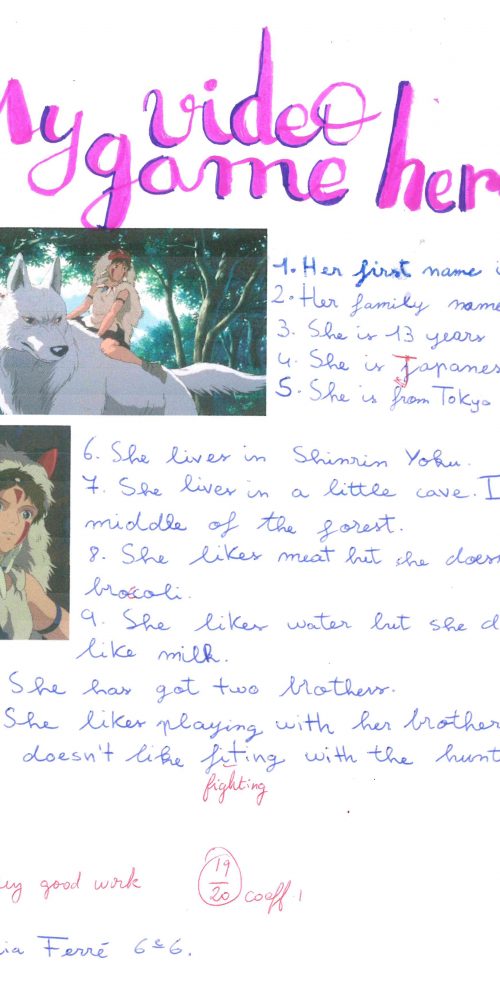 My video
game her
1. Her first name i
2. Her family name
3. She is 13 years
4. She is Japanes
5. She is from Tokyo
6. She lives in Shinrin Yoku.
7. She lives in a little cave. I
middle of the forest.
8. She likes meat but she doesn
brocoli.
9. She likes water but she d
like milk.
She has got two brothers.
She likes playing with her brother
doesn't like fiting with the hunt
fighting
good work
19
20
coeff 1
Ferré 6e6.